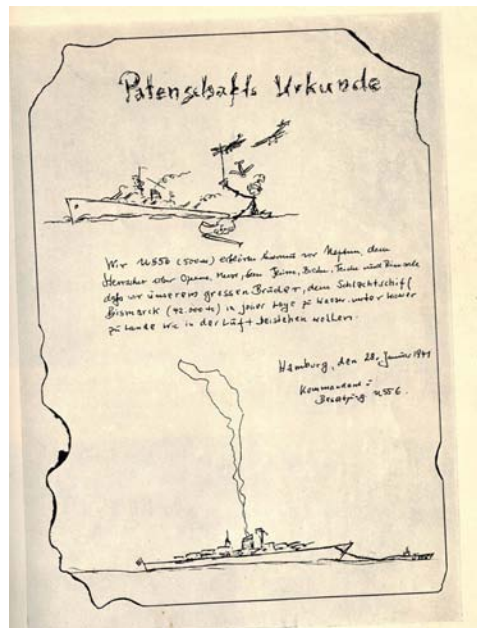 Patenschafts Urkunde
Wir U556 (500to) erklären hiermit vor Neptun, dem
Herrscher über Ozeane, Meere, Seen, Flüsse, Bäche, Teiche und Rinnsale
daß wir unserem grossen Bruder, dem Schlachtschiff
Bismarck (42.000 to) in jeder Lage zu Wasser, unter Wasser
zu Lande wie in der Luft beistehen wollen.
Hamburg, den 28. Januar 1941
Kommandant u
Besatzung U556.